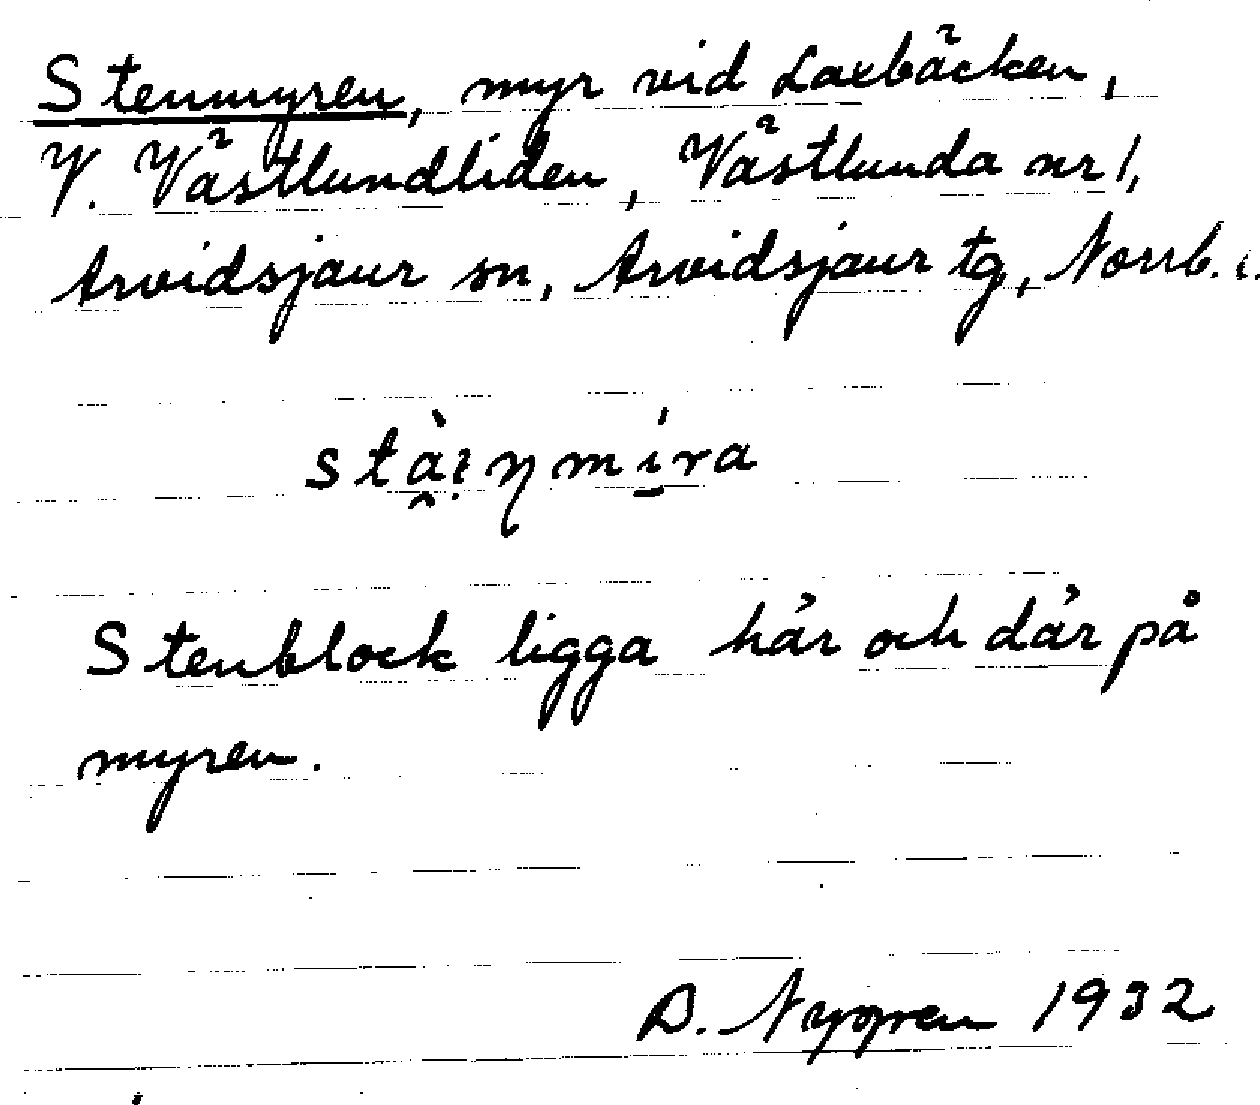 Stenmyren, myr vid Laxbäcken,
V. Västlundliden, Västlunda nr 1,
Arvidsjaur sn, Arvidsjaur tg, Norrb. l.
Stenblock ligga här och där på
myren.
D. Nygren 1932